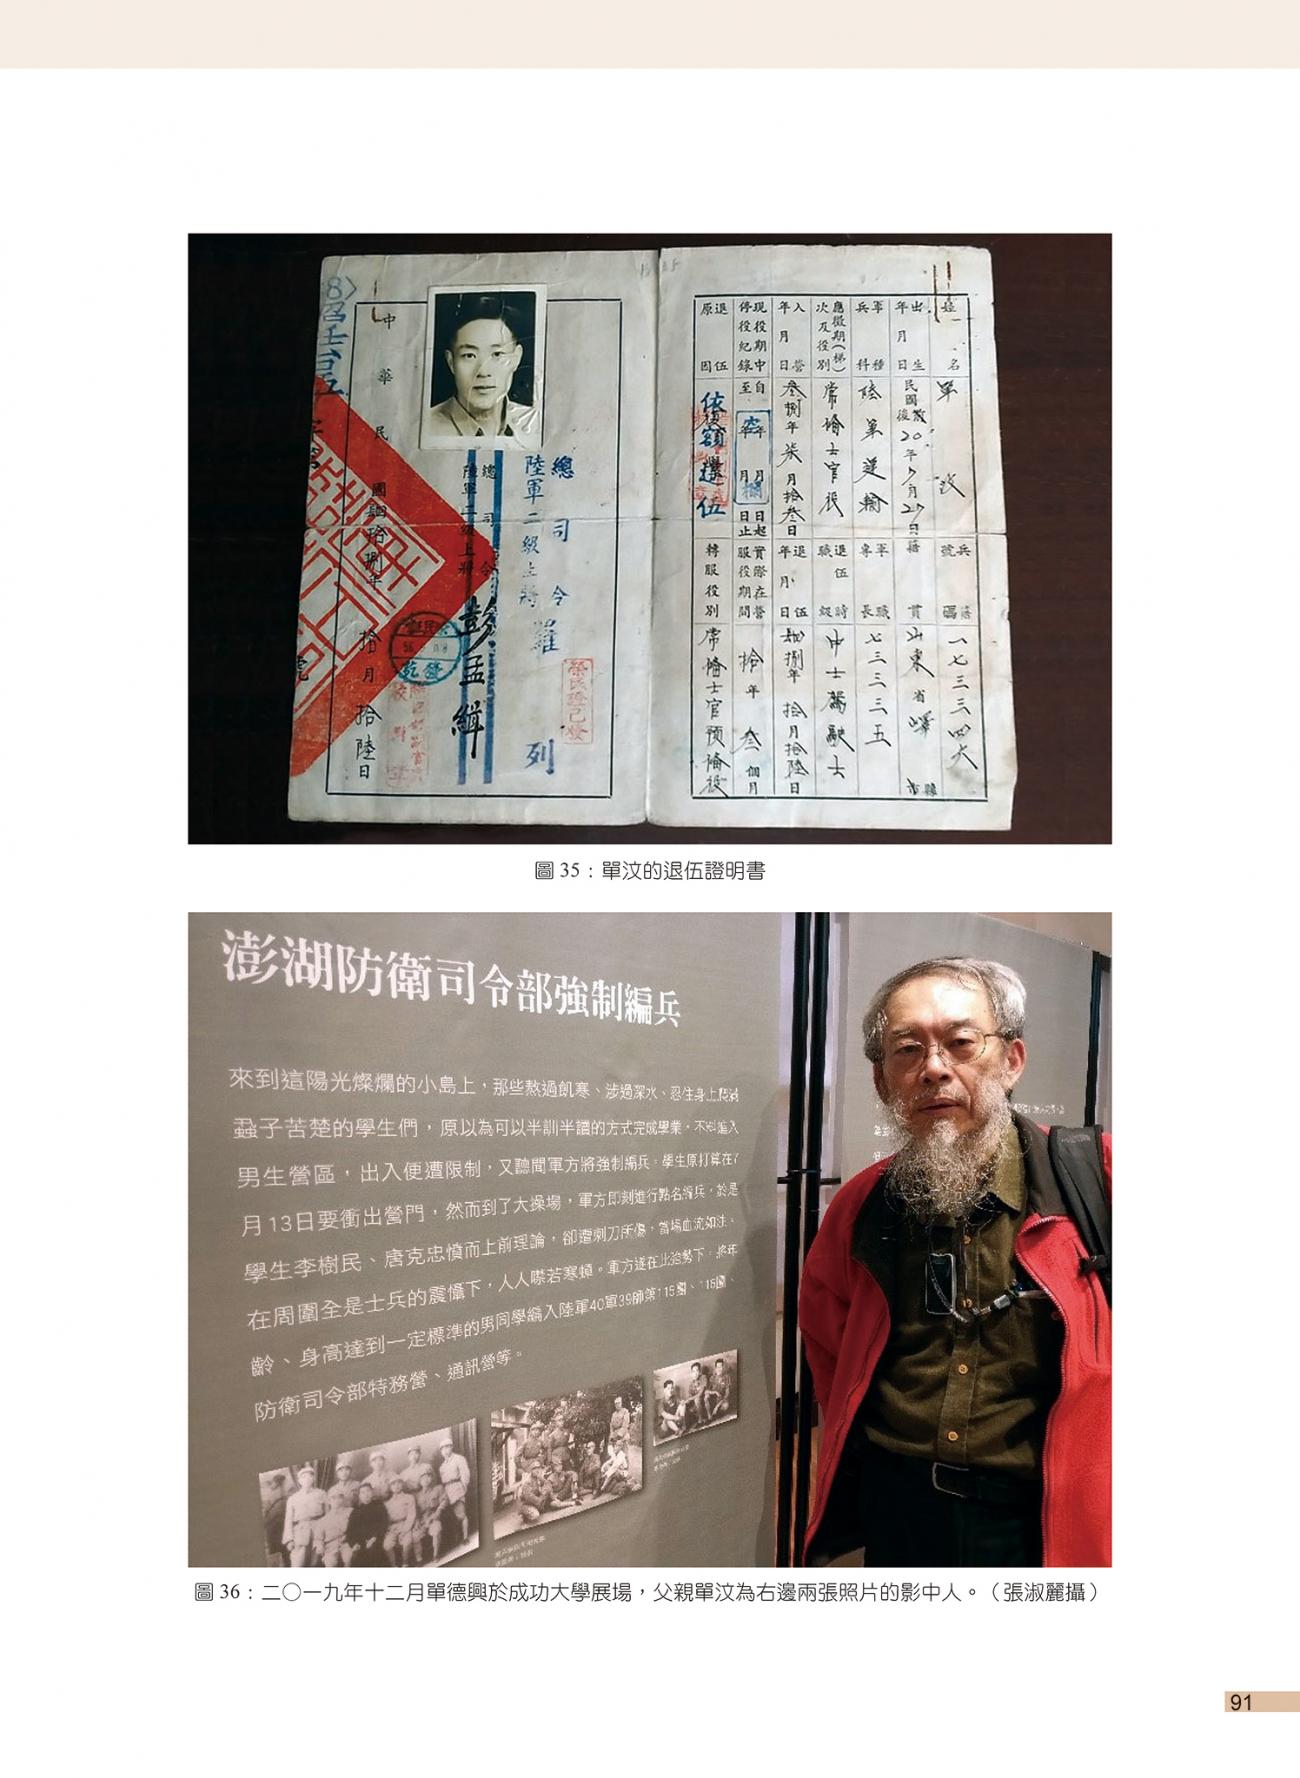 中華民國肆拾捌年拾月拾陸日
總司令
陸軍二級上將 彭孟緝
總司令
陸軍二級上將 羅列
榮民證已發
姓名 單汶
兵籍號碼 一七三三四六
出生年月日
籍貫 山東省嶧縣市
軍種兵科 陸軍運輸
軍職專長 七三三三五
應徵期(梯)次及役別 常備士官役
退伍時職級 中士駕駛士
入營年月日 叁捌年柒月拾叁日
退伍年月日 肆捌年拾月拾陸日
現役期中停役紀錄 自年月日起至年月日止
實際在營服役期間 拾年叁個月
退伍原因 依復額退伍
轉服役別 常備士官預備役
圖 35：單汶的退伍證明書
澎湖防衛司令部強制編兵
來到這陽光燦爛的小島上，那些熬過飢寒、涉過深水、忍住身上爬滿
蝨子苦楚的學生們，原以為可以半訓半讀的方式完成學業，不料進入
男生營區，出入便遭限制，又聽聞軍方將強制編兵。學生原打算在7
月13日要衝出營門，然而到了大操場，軍方即刻進行點名編兵，於是
學生李樹民、唐克忠憤而上前理論，卻遭刺刀所傷，當場血流如注。
在周圍全是士兵的震懾下，人人噤若寒蟬。軍方遂在此強勢下，將年
齡、身高達到一定標準的男同學編入陸軍40軍39師第115團、116團、
防衛司令部特務營、通訊營等。
圖 36：二〇一九年十二月單德興於成功大學展場，父親單汶為右邊兩張照片的影中人。（張淑麗攝）
91